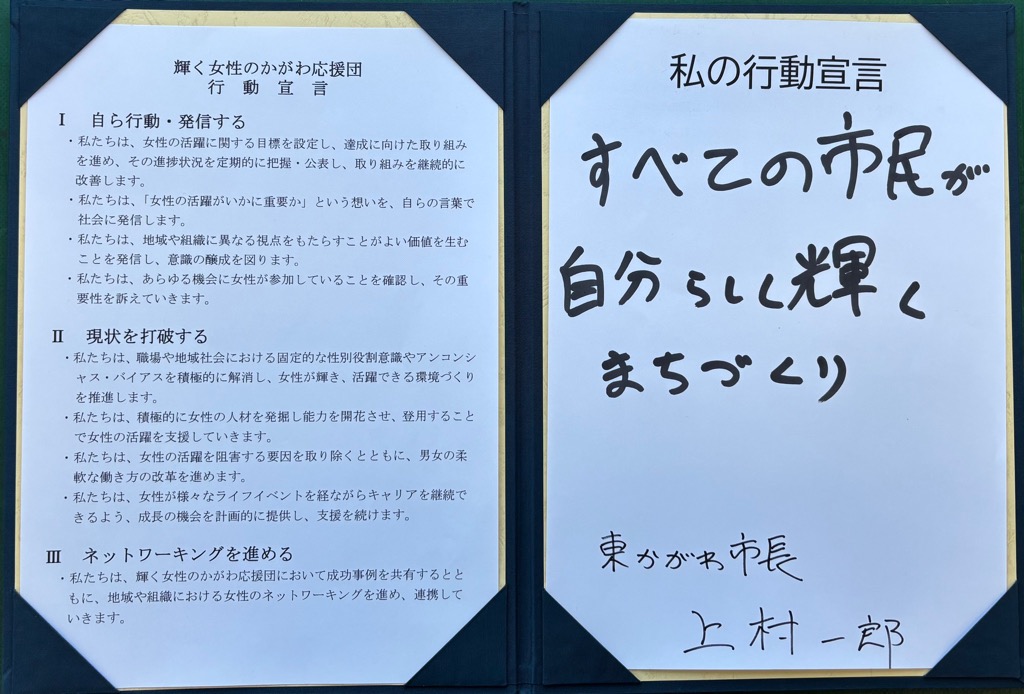 輝く女性のかがわ応援団
行動宣言
Ⅰ 自ら行動・発信する
・私たちは、女性の活躍に関する目標を設定し、達成に向けた取り組み
を進め、その進捗状況を定期的に把握・公表し、取り組みを継続的に
改善します。
・私たちは、「女性の活躍がいかに重要か」という想いを、自らの言葉で
社会に発信します。
・私たちは、地域や組織に異なる視点をもたらすことがよい価値を生む
ことを発信し、意識の醸成を図ります。
・私たちは、あらゆる機会に女性が参加していることを確認し、その重
要性を訴えていきます。
Ⅱ 現状を打破する
・私たちは、職場や地域社会における固定的な性別役割意識やアンコンシ
ャス・バイアスを積極的に解消し、女性が輝き、活躍できる環境づくり
を推進します。
・私たちは、積極的に女性の人材を発掘し能力を開花させ、登用すること
で女性の活躍を支援していきます。
・私たちは、女性の活躍を阻害する要因を取り除くとともに、男女の柔
軟な働き方の改革を進めます。
・私たちは、女性が様々なライフイベントを経ながらキャリアを継続で
きるよう、成長の機会を計画的に提供し、支援を続けます。
Ⅲ ネットワーキングを進める
・私たちは、輝く女性のかがわ応援団において成功事例を共有するとと
もに、地域や組織における女性のネットワーキングを進め、連携して
いきます。
私の行動宣言
すべての市民が
自分らしく輝く
まちづくり
東かがわ市長
上村一郎